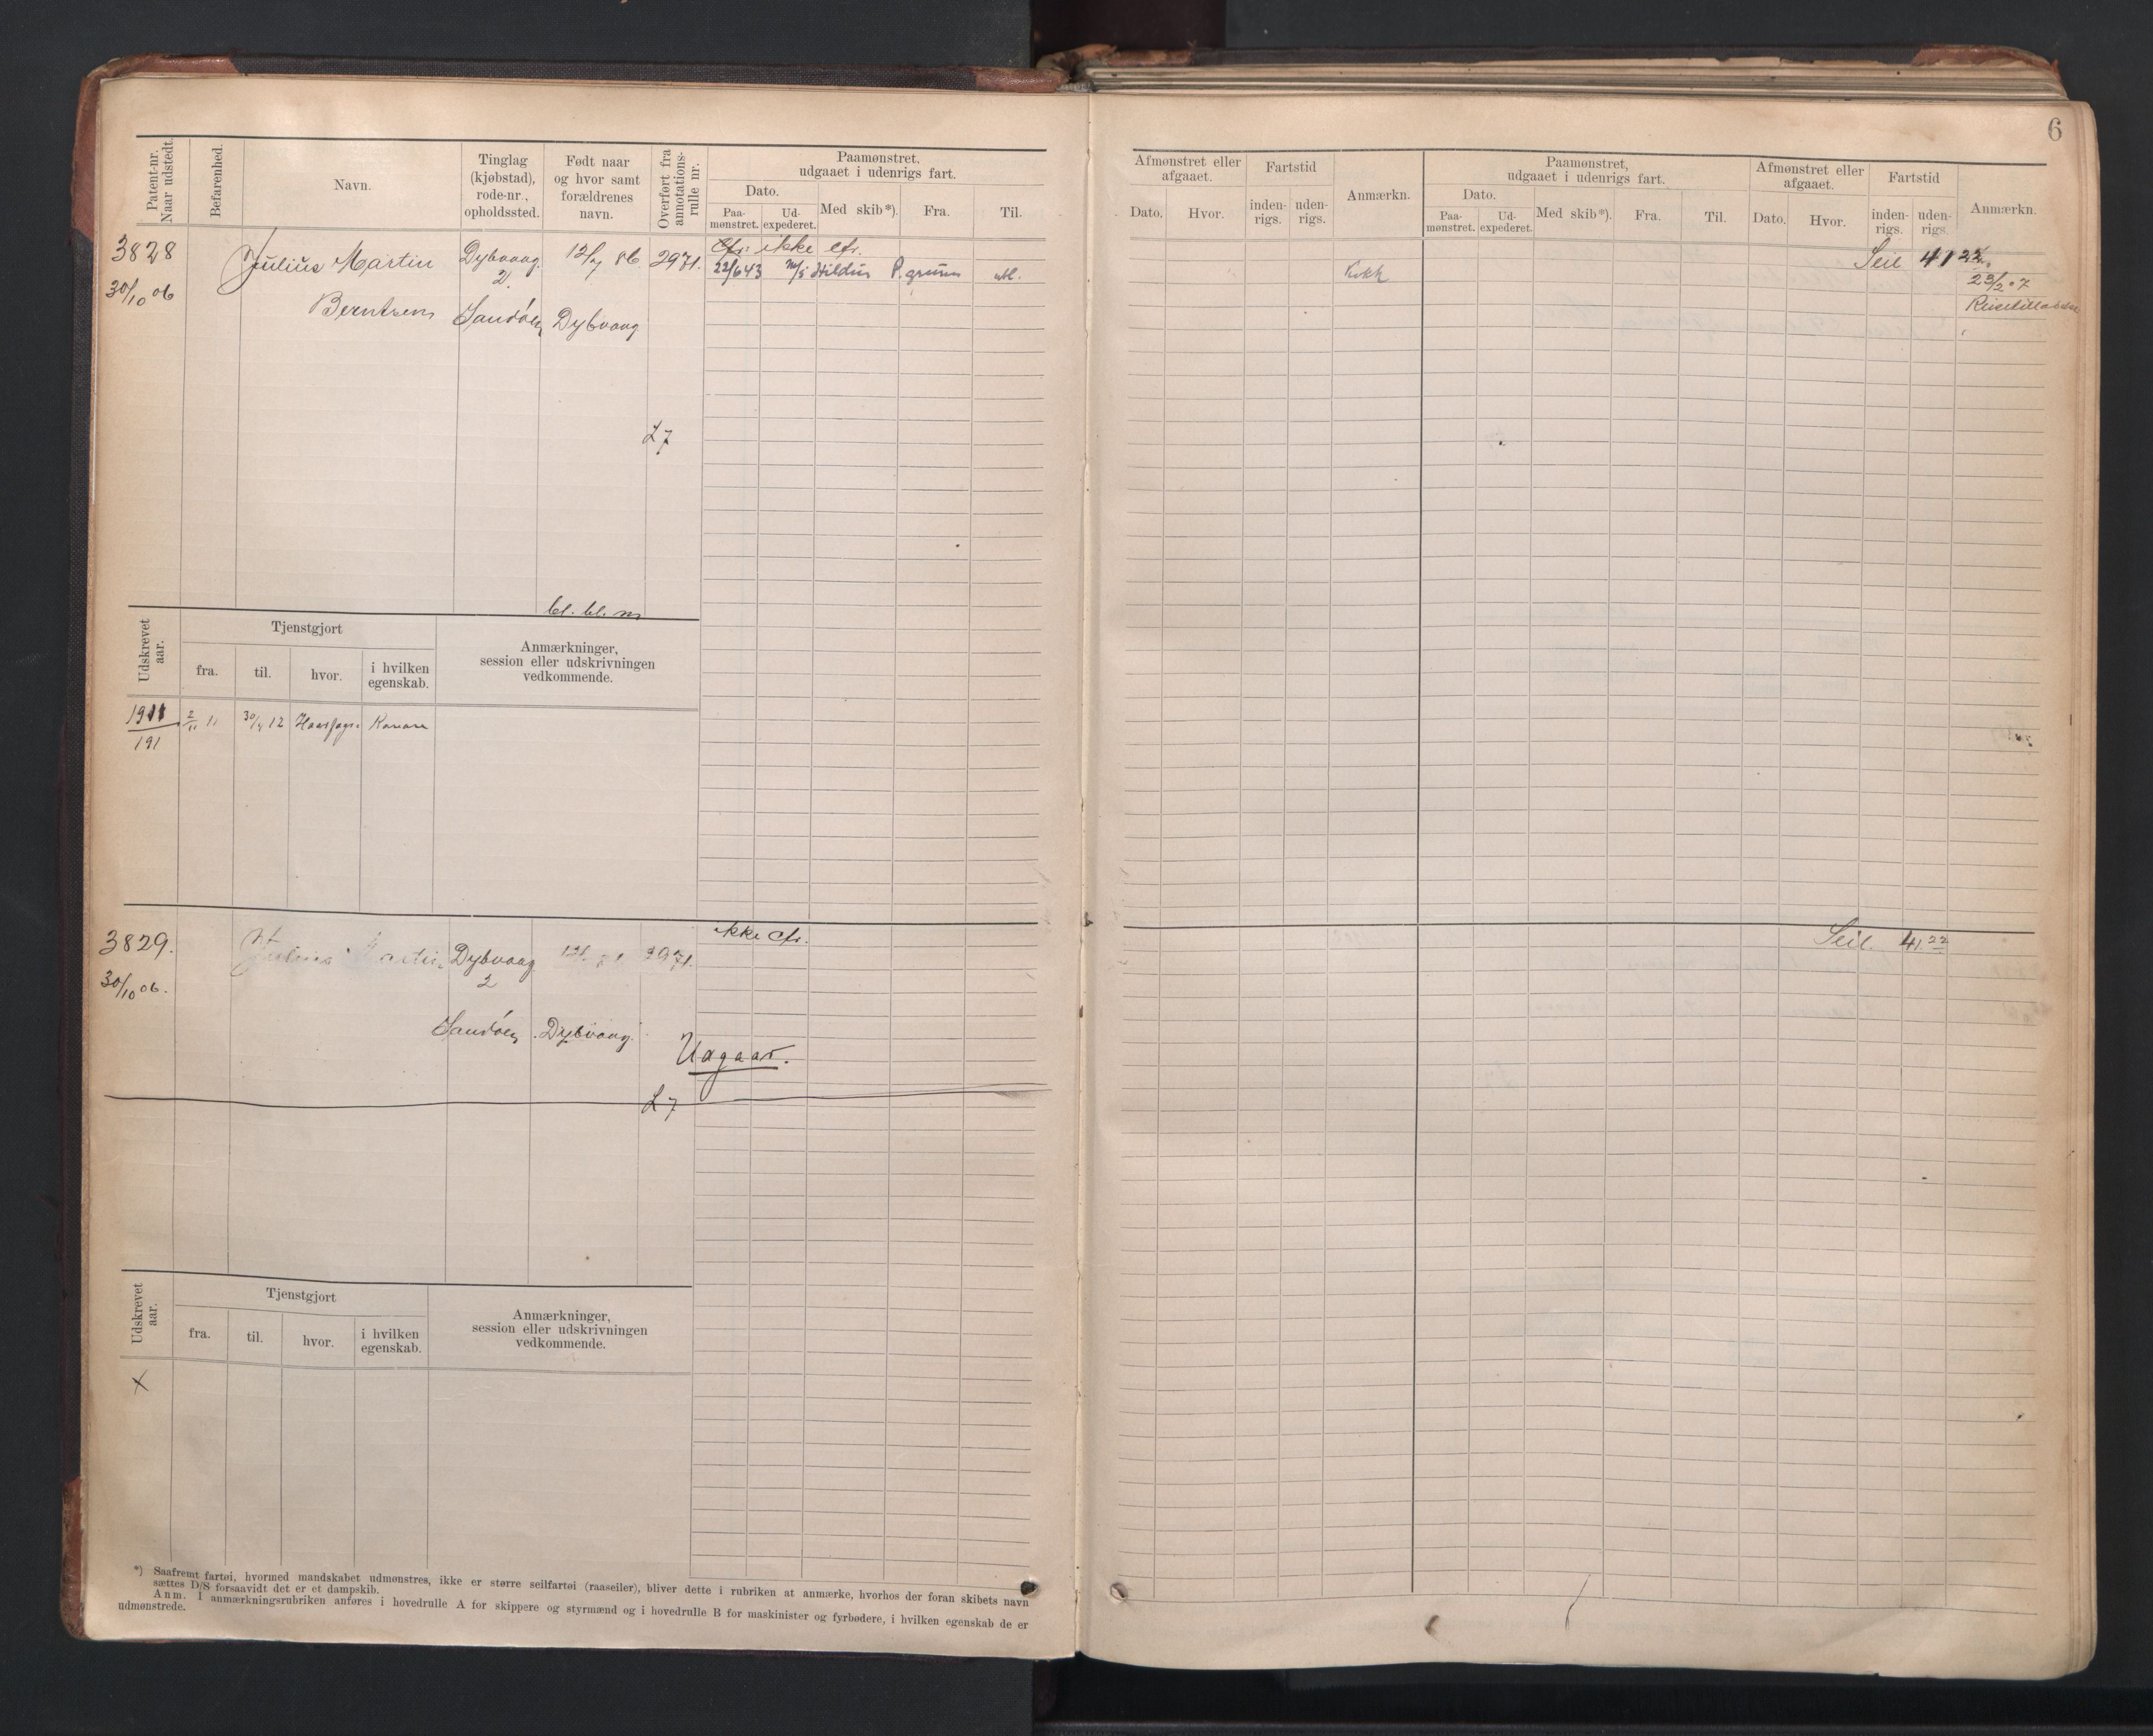 6
Patent-nr.
Naar udstedt.
Befarenhed.
Navn.
Tinglag
(kjøbstad),
rode-nr.,
opholdssted.
Født naar
og hvor samt
forældrenes
navn.
Overført fra
annotations-
rulle nr.
Paamønstret,
udgaaet i udenrigs fart.
Dato.
Paa-
mønstret.
Ud-
expederet.
Med skib*).
Fra.
Til.
Afmønstret eller
afgaaet.
Dato.
Hvor.
Fartstid
inden-
rigs.
uden-
rigs.
Anmærkn.
Paamønstret,
udgaaet i udenrigs fart.
Dato.
Paa-
mønstret.
Ud-
expederet.
Med skib*).
Fra.
Til.
Afmønstret eller
afgaaet.
Dato.
Hvor.
Fartstid
inden-
rigs.
uden-
rigs.
Anmærkn.
3828
30/10 06
Julius Martin
Berntsen
Dybvaag.
2.
Sandøen
12/7 86
Dybvaag
2971.
ikke efr.
22/6 43 m/s Hildur P.grunn utl.
Kokk
Seil 41 22
23/2 07
L 7
bl. bl. m
Udskrevet
aar.
Tjenstgjort
fra.
til.
hvor.
i hvilken
egenskab.
Anmærkninger,
session eller udskrivningen
vedkommende.
1911
191
2/11 11
30/4 12
3829.
30/10 06.
Julius Martin
Dybvaag
2
Sandøen
Dybvaag.
2971.
ikke efr.
Udgaar.
Seil. 41 22
L 7
Udskrevet
aar.
Tjenstgjort
fra.
til.
hvor.
i hvilken
egenskab.
Anmærkninger,
session eller udskrivningen
vedkommende.
X
*) Saafremt fartøi, hvormed mandskabet udmønstres, ikke er større seilfartøi (raaseiler), bliver dette i rubriken at anmærke, hvorhos der foran skibets navn
sættes D/S forsaavidt det er et dampskib.
Anm. I anmærkningsrubriken anføres i hovedrulle A for skippere og styrmænd og i hovedrulle B for maskinister og fyrbødere, i hvilken egenskab de er
udmønstrede.